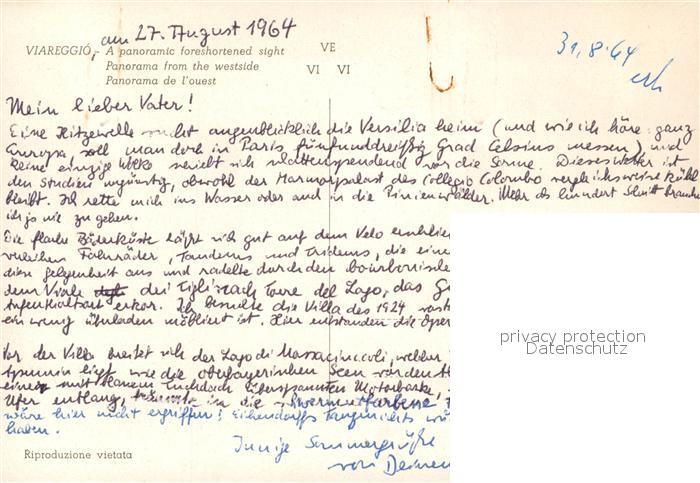 am 27. August 1964
VIAREGGIO, - A panoramic foreshortened sight
Panorama from the westside
Panorama de l'ouest
VE
VI VI
31.8.64
Mein lieber Vater!
Eine Hitzewelle sucht augenblicklich die Versilia heim (und wie ich höre: ganz
Europa soll man doch in Paris fünfunddreißig Grad Celsius messen) und
keine einzige Wolke schiebt sich schattenspendend vor die Sonne. Dieses Wetter ist
den Studien ungünstig, obwohl der Marmorpalast des Collegio Colombo vergleichsweise kühl
bleibt. Ich rette mich ins Wasser oder auch in die Pinienwälder. Mehr als hundert Schritt brauche
ich ja nie zu gehen.
Die flache Bäderküste läßt sich gut auf dem Velo
Fahrräder, Tandems und Tridems, die eine
Gelegenheit aus und radelte durch den bourbonische
dem Viale dei Tigli nach Torre del Lago, das
erkor. Ich besuchte die Villa des 1924
ein wenig überladen möbliert ist. Hier entstanden die Oper
Vor der Villa breitet sich der Lago di Massaciuccoli, welcher
liegt wie die oberbayerischen Seen vor den
einer mit blauem Tuchdach überspannten Motorbarke
Ufer entlang, in die
wäre hier nicht ergriffen! Eichendorffs Taugenichts
haben.
Innige Sommergrüße
von Deinem
Riproduzione vietata
privacy protection
Datenschutz